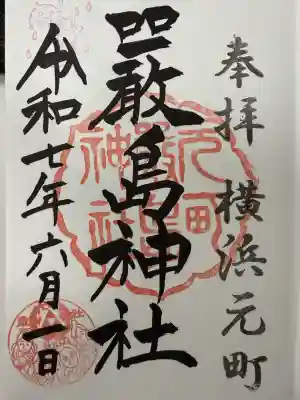 奉拝 横浜元町
嚴島神社
令和七年六月一日
元町嚴島神社